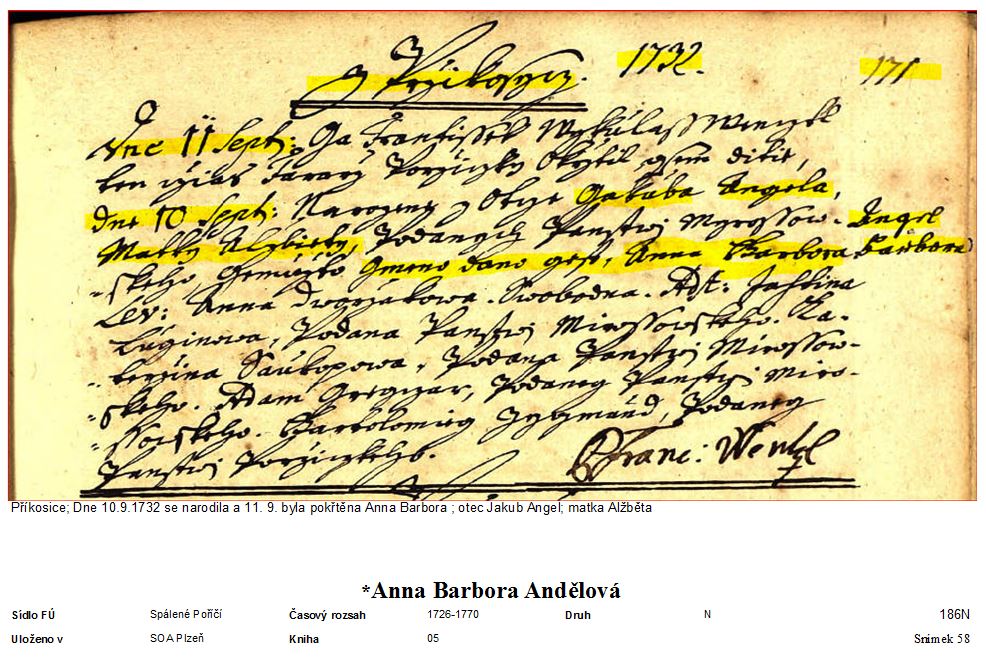 z Przikosycz. 1732. 171
Dne 11 Sept: Ga Frantissek Mykulass Wenczl
ten czias Fararz Porziczky Okrztil gsem ditie,
dne 10 Sept: Narozeny z Otcze Gakuba Angela,
Matky Alzbiety, Podanych Panstwj Myrossow- Angel
skeho Gmeno dano gest, Anna Barbora. Barbora
Lev: Anna Dworzakowa. Swobodna. Ast:
Podana Panstwj Mirossowskeho. Ka-
terzina Saukopowa, Podana Panstwj Mirossow-
skeho. Adam Podaneg Panstwj Miro-
ssowskeho. Bartolomieg Podaneg
Panstwj Porziczkeho. Franc: Wenczl
Příkosice; Dne 10.9.1732 se narodila a 11. 9. byla pokřtěna Anna Barbora ; otec Jakub Angel; matka Alžběta
*Anna Barbora Andělová
Sídlo FÚ Spálené Poříčí Časový rozsah 1726-1770 Druh N 186N
Uloženo v SOA Plzeň Kniha 05 Snímek 58